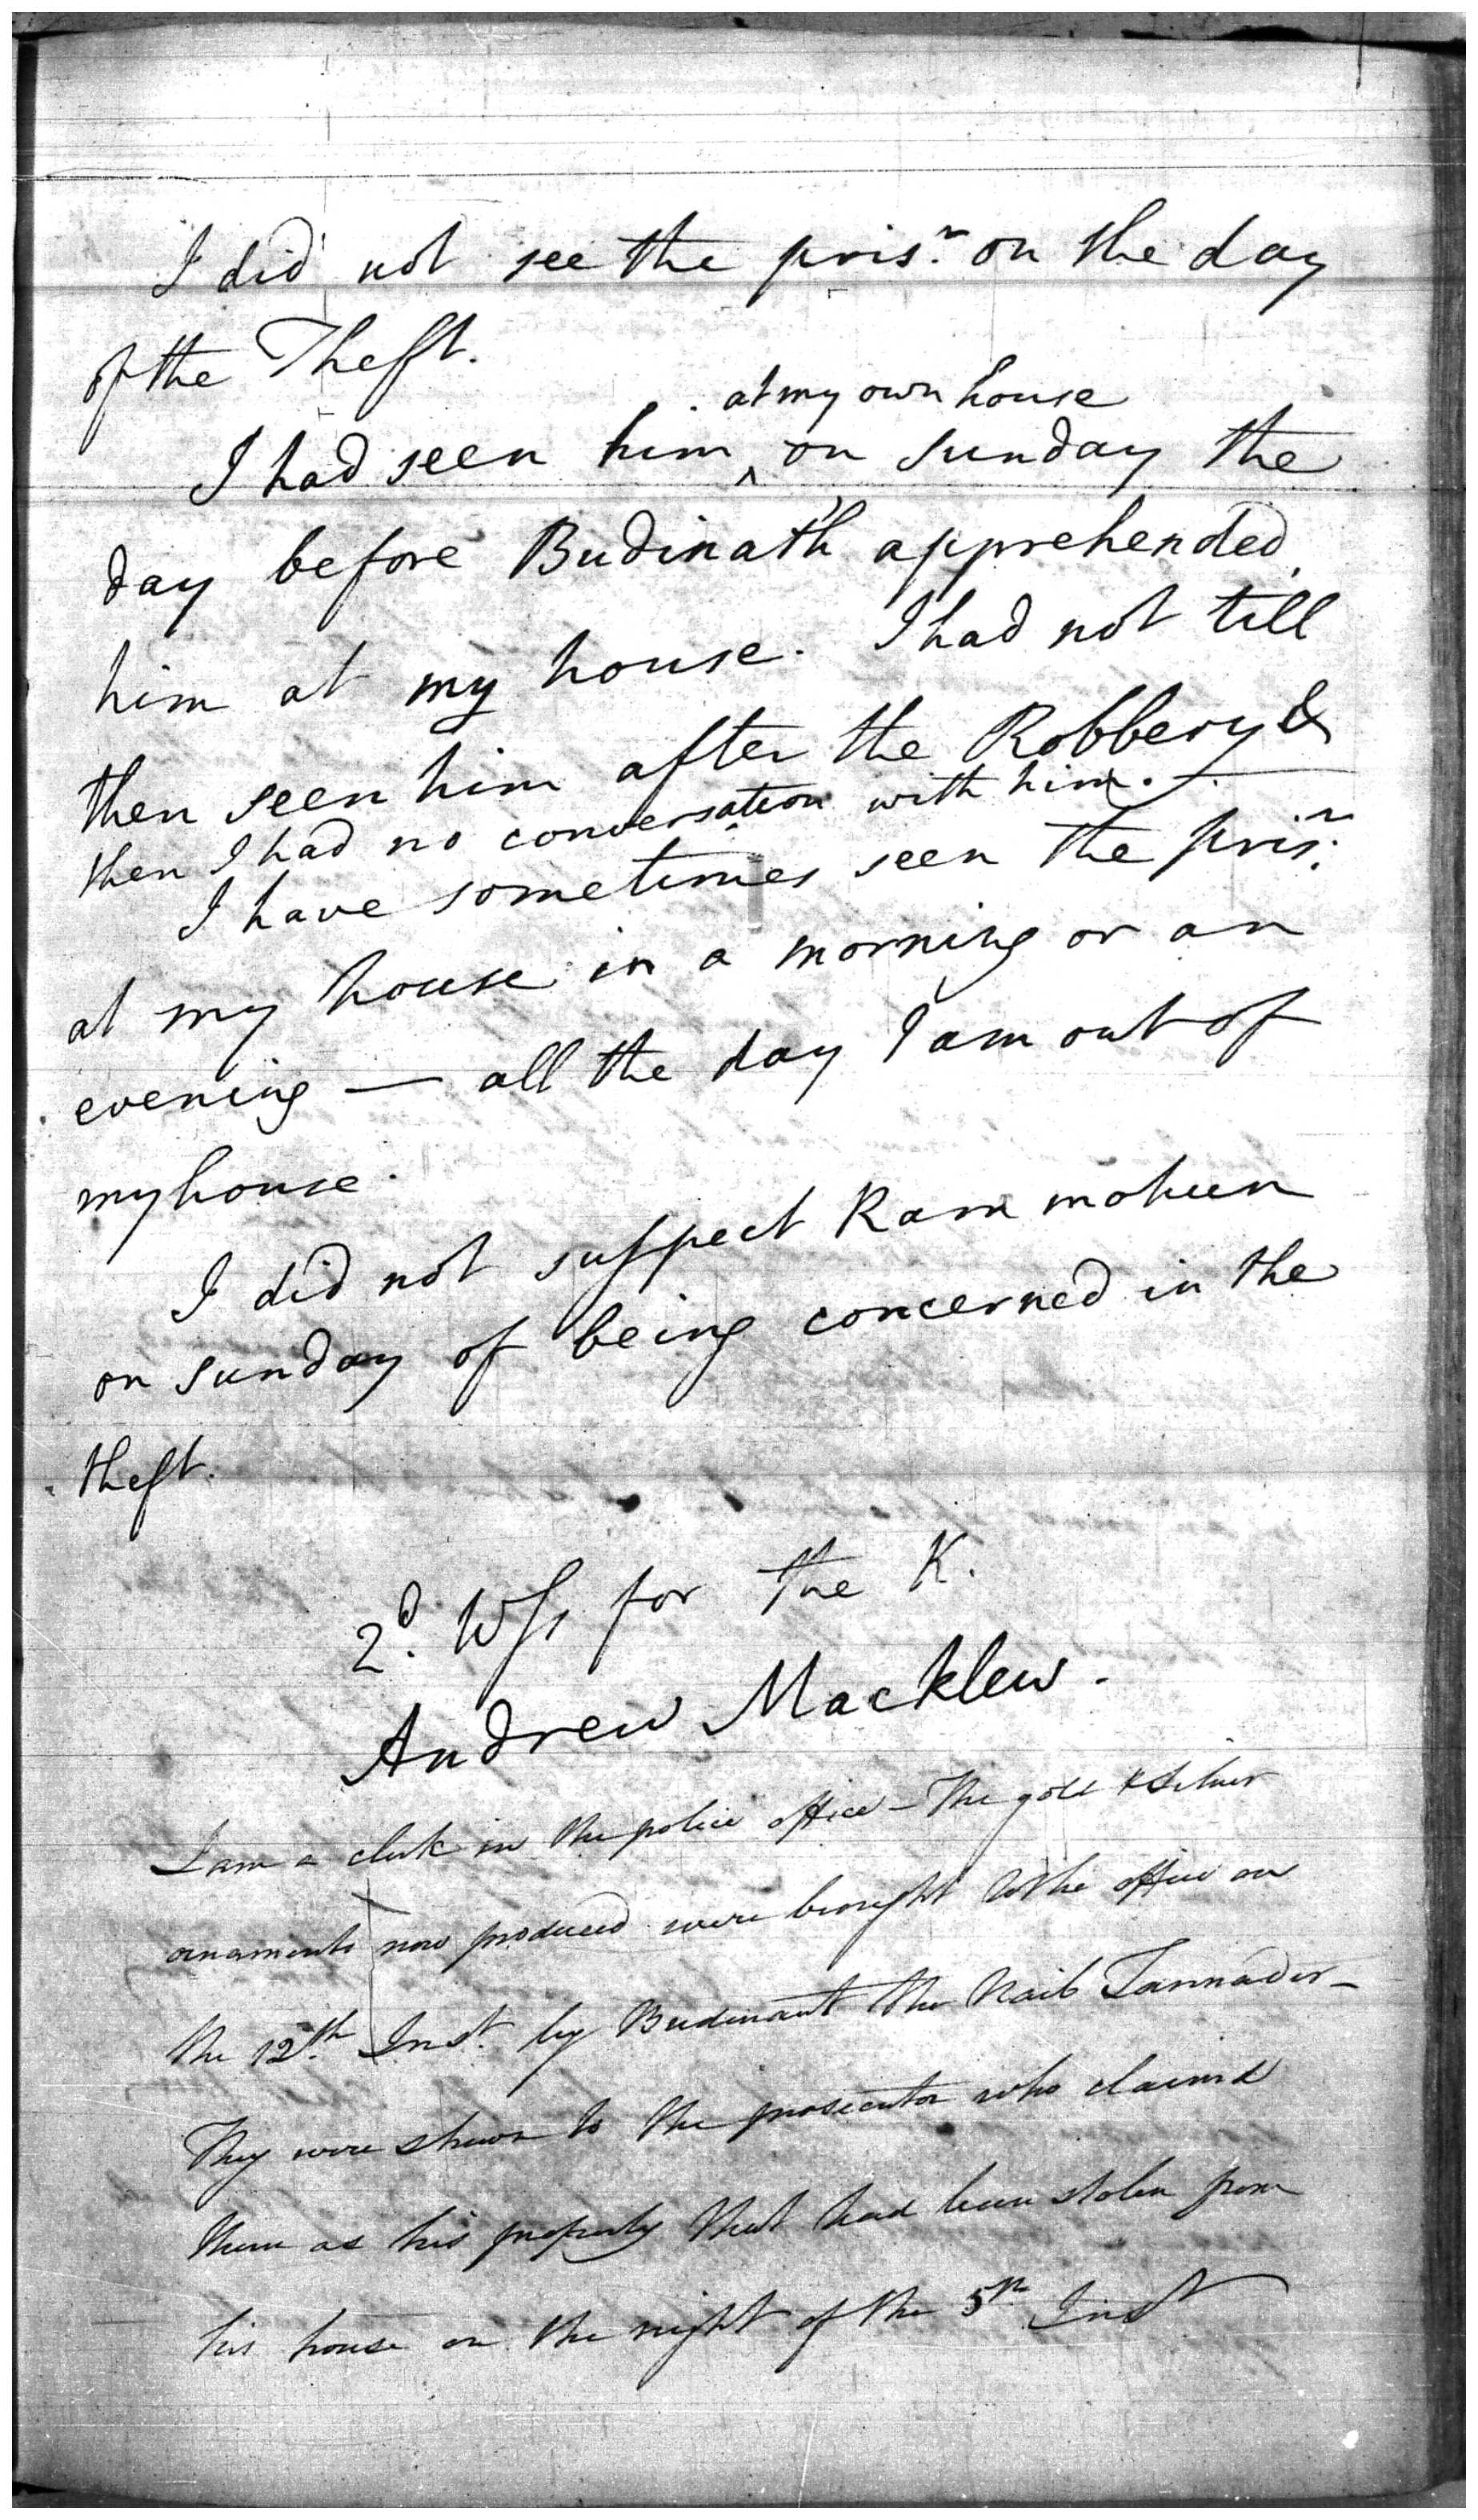 I did not see the prisr. on the day
of the Theft.
at my own house
I had seen him ^ on sunday the
day before Budinath apprehended
him at my house. I had not till
then seen him after the Robbery &
then I had no conversation with him. —
I have sometimes seen the prisr.
at my house in a morning or an
evening — all the day I am out of
my house.
I did not suspect Ram mohun
on sunday of being concerned in the
theft.
2d. Wss for the K.
Andrew Macklew.
I am a clerk in the police office — The gold & Silver
ornaments now produced were brought to the office on
the 12th. Inst. by Budinaut the Naib Tannader —
They were shewn to the prosecutor who claimd
them as his property that had been stolen from
his house on the night of the 5th Inst